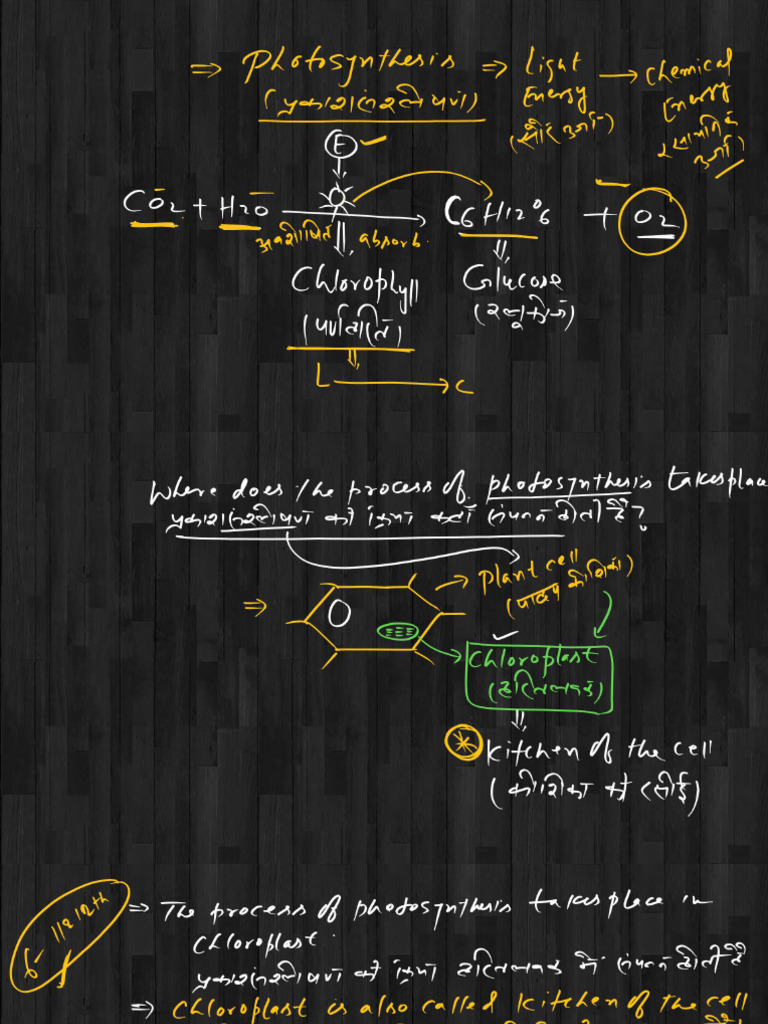 ⇒ Photosynthesis ⇒ Light Energy → Chemical Energy
(प्रकाश संश्लेषण) (सौर ऊर्जा)
E
CO2 + H2O → C6H12O6 + O2
अवशोषित absorb.
Chlorophyll Glucose
(पर्णहरित) (ग्लूकोज)
L → C
Where does the process of photosynthesis takesplace
प्रकाश संश्लेषण की क्रिया कहाँ संपन्न होती है?
⇒ → Plant cell
(पादप कोशिका)
Chloroplast
(हरितलवक)
Kitchen of the cell
(कोशिका की रसोई)
⇒ The process of photosynthesis takes place in
Chloroplast.
प्रकाश संश्लेषण की क्रिया हरितलवक में संपन्न होती है
⇒ Chloroplast is also called kitchen of the cell